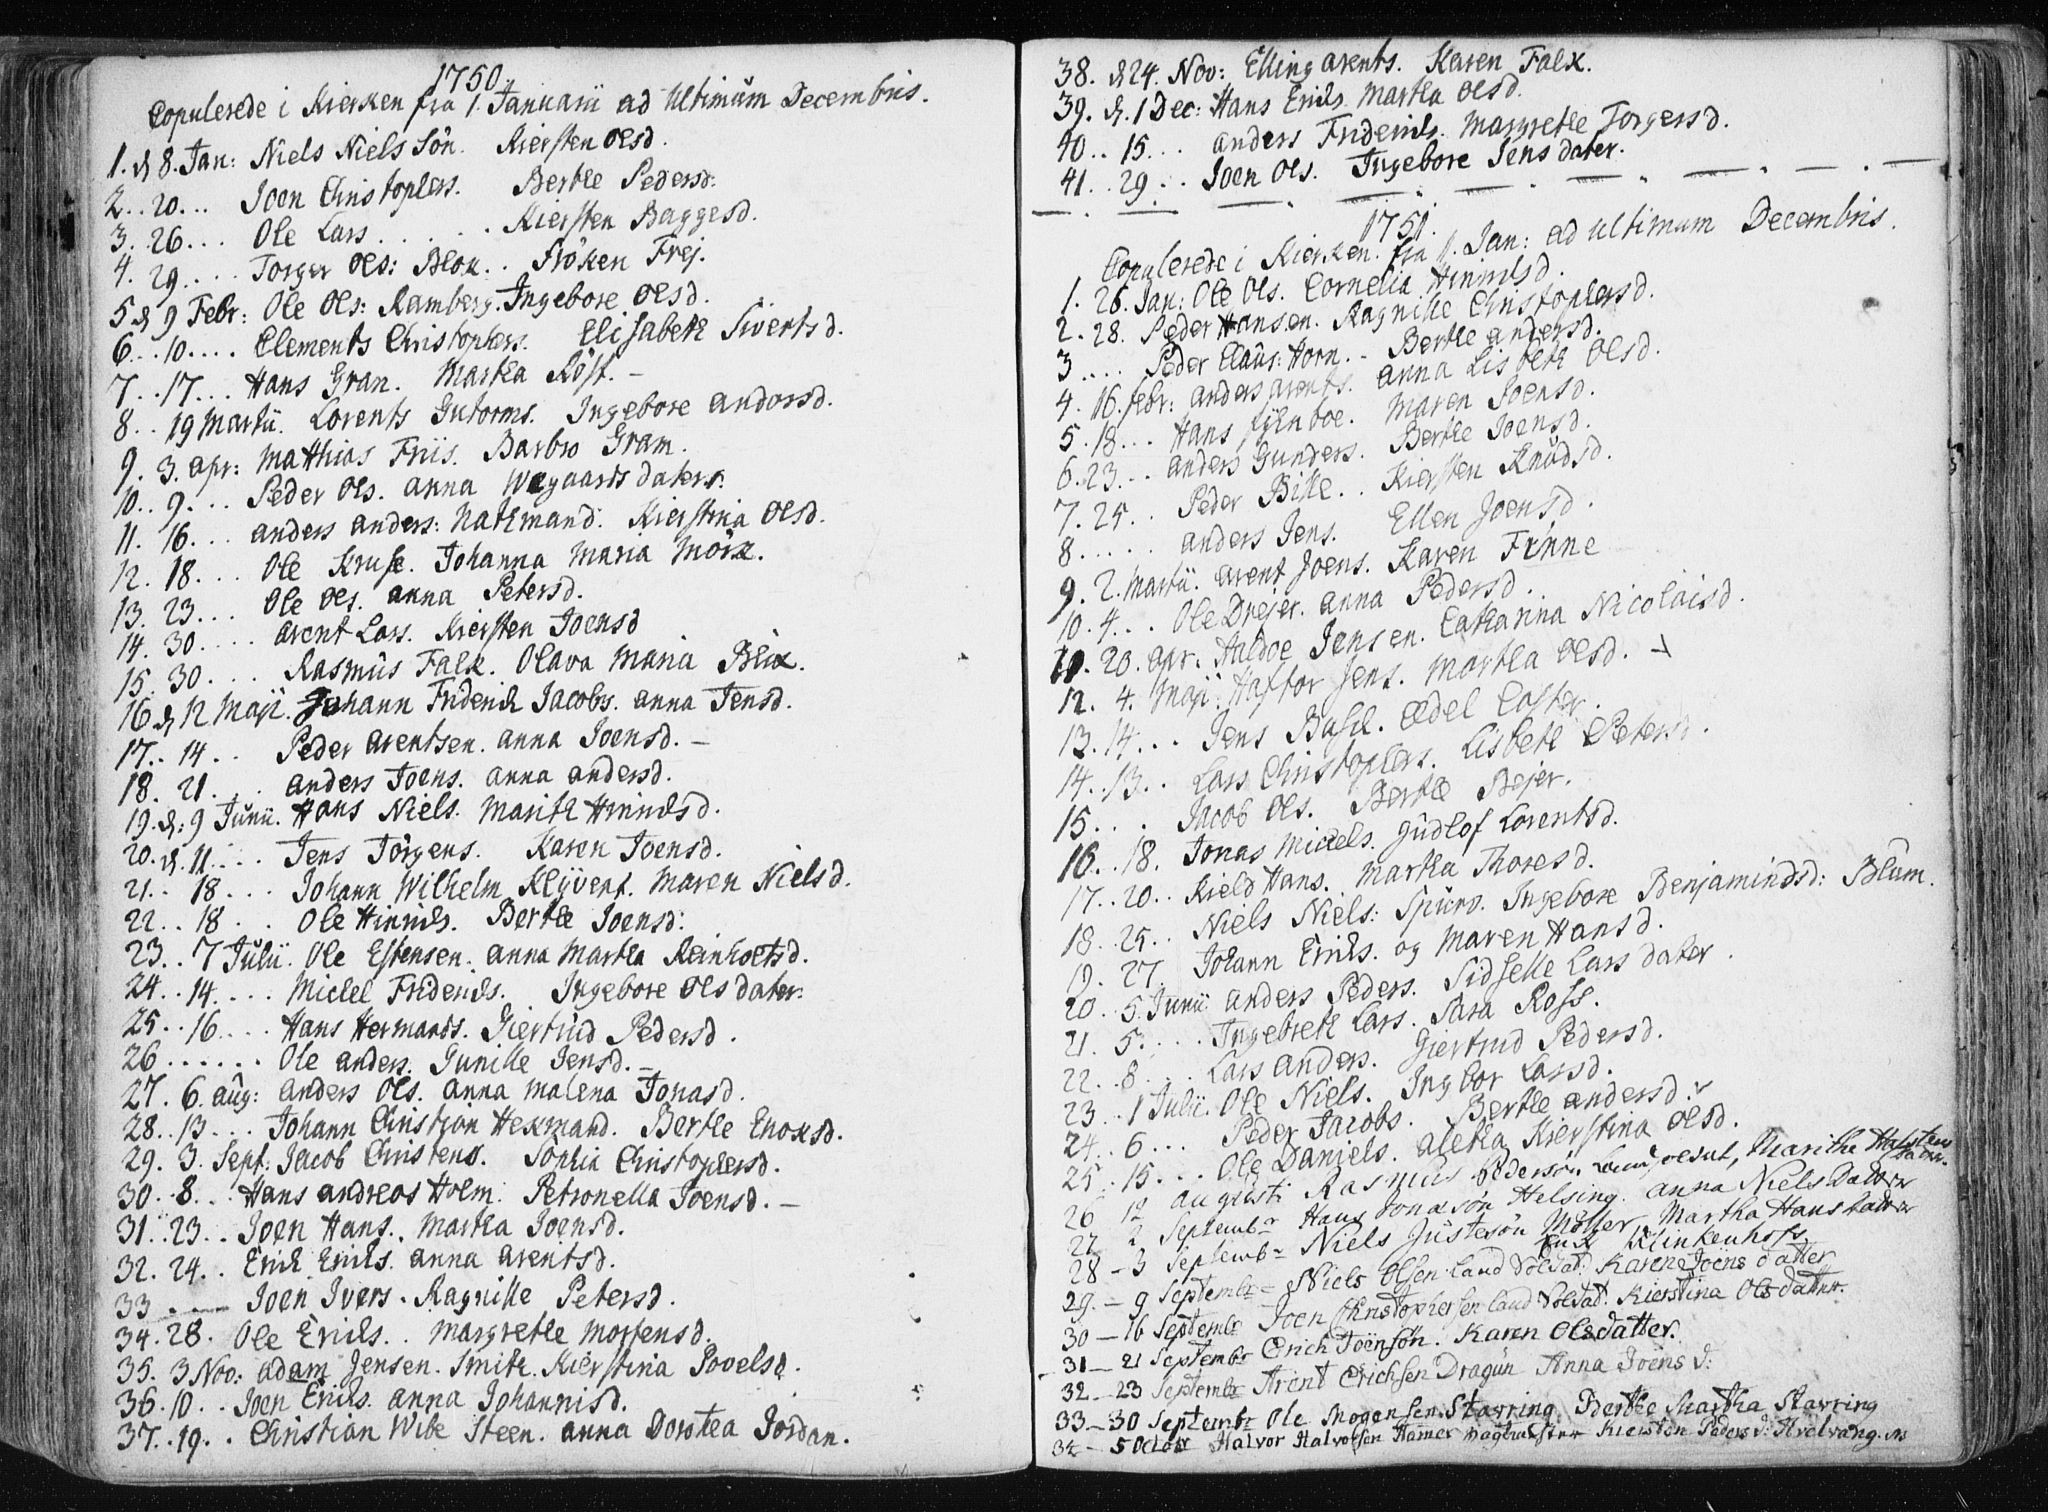 1750.
Copulerede i Kierken fra 1. Januarii ad Ultimum Decembris.
1. d. 8. Jan: Niels Niels Sön. Kiersten Olsd.
2. . 20. . . Joen Christophers. Berthe Pedersd:
3. 26. . . Ole Lars . . . . . Kiersten Baggesd.
4. 29. . . . Torger Ols: Blok. . Fröken Frej.
5 d. 9 Febr: Ole Ols: Ramberg. Ingebore Olsd.
6. . 10. . . . Clements Christophers. Elisabeth Sivertsd.
7. . 17. . . Hans Gran. Martha Röst. –
8. . 19 Martii. Lorents Gutorms. Ingebore Andersd.
9. 3. Apr: Matthias Friis. Barbro Gram.
10. . 9. . . Peder Ols. Anna Wegaards daters.
11. 16. . . Anders Anders: Nathmand. Kierstina Olsd.
12. 18. . . . Ole Kruse. Johanna Maria Mörk.
13. 23. . . . Ole Ols. Anna Petersd.
14. 30. . . . Arent Lars. Kiersten Joensd
15. 30. . . . Rasmus Falk. Olava Maria Blix.
16 d. 12 Maji. Johann Friderich Jacobs. Anna Jensd.
17. . 14 . . Peder Arentsen. Anna Joensd. –
18. 21. . . Anders Joens. Anna Andersd.
19. d: 9 Junii. Hans Niels. Marith Hinrichsd.
20. d. 11. . . . Jens Jörgens. Karen Joensd.
21. . 18 . . . Johann Wilhelm Klÿvert. Maren Nielsd.
22. . 18 . . Ole Hinrichs. Berthe Joensd:
23. . 7 Julii. Ole Estensen. Anna Martha Reinholtsd.
24. . 14. . . . Michel Friderichs. Ingebore Ols dater.
25. . 16. . . . Hans Hermands. Giertrud Pedersd.
26 . . . . . . Ole Anders. Gunille Jensd. –
27. 6. Aug: Anders Ols. Anna Malena Jonasd.
28. . 13. . . . Johann Christian Hexmand. Berthe Enoksd.
29. 3. Sept: Jacob Christens. Sophia Christophersd.
30. . 8. . . Hans Andreas Holm. Petronella Joensd. –
31. . 23. . Joen Hans. . Martha Joensd.
32. 24. . Erich Erichs. Anna Arentsd.
33 . . . . Joen Ivers. Ragnille Petersd.
34. 28. Ole Erichs. . Margrethe Mortensd.
35. 3 Nov: Adam Jensen. Smith. Kierstina Povelsd.
36. 10. . Joen Erichs. Anna Johannisd.
37. . 19. . Christian Wibe Steen. Anna Dorotea Jordan.
38. d. 24. Nov: Elling Arents. Karen Falk.
39. d. 1 Dec: Hans Erichs. Martha Olsd.
40. . 15. . . Anders Friderichs. Margrethe Torgersd.
41. . 29. . . Joen Ols. Ingebore Jens dater.
1751.
Copulerede i Kierken fra 1. Jan: ad ultimum Decembris.
1. 26. Jan: Ole Ols. Cornelia Hinrichsd.
2. 28. Peder Hansen. Ragnille Christophersd.
3 . . . . Peder Claus: Horn. – Berthe Andersd.
4. 16. febr: Anders Arents. Anna Lisbeth Olsd.
5. 18. . . Hans Fÿenboe. Maren Joensd.
6. 23. . . Anders Gunders. Berthe Joensd.
7. 25. . Peder Bille. . Kiersten Knudsd.
8. . . . . Anders Jens. Ellen Joensd.
9. 2. Martii. Arent Joens. Karen Finne
10. 4. . . Ole Drejer. Anna Pedersd.
11. 20. Apr: Haldoe Jensen. Catharina Nicolaisd.
12. 4. Maji. Haftor Jens. Martha Olsd. –
13. 14. . . Jens Basel. Edel Caster.
14. . 13. . Lars Christophers. Lisbeth Petersd.
15. . . Jacob Ols. Berthe Bejer.
16. . 18. Jonas Michels. Gudlof Lorentsd.
17. . 20. . Kield Hans. Martha Thoresd.
18. . 25. . Niels Niels: Spurv. Ingebore Benjamindsd: Blum.
19. 27. Johann Erichs. og Maren Hansd.
20. 5. Junii Anders Peders. Sidselle Lars dater.
21. 5. . . . Ingebreth Lars. Sara Ross.
22. . 8. . . . Lars Anders. Giertrud Pedersd.
23. . 1 Julii. Ole Niels. Ingbor Larsd.
24. . 6. . . Peder Jacobs. Berthe Andersd.
25. . 15. . . Ole Daniels. Aletha Kierstina Olsd.
26 12 Augusti Rasmus Pedersön Land Soldat, Marithe datter.
27 2 Septembr Hans Jonasön Helsing. Anna Niels Datter
28 – 3 Septembr Niels Justesön Möller Martha Hans Datter
Enck Klinkenhofs
29. – 9 Septembr – Niels Olsen Land Soldat. Karen Joens datter
30 – 16 Septembr Joen Christophersen Land Soldat. Kierstina Ols datter.
31 – 21 Septembr Erich Joensön. Karen Olsdatter.
32 – 23 Septembr Arent Erichsen Dragun Anna Joens d:
33 – 30 Septembr Ole Mogensen Stavring. Berthe Martha Stavring
34 – 5 Octobr Halvor Halvorsen Hamer Kiersten Peders d: Hvelvang.